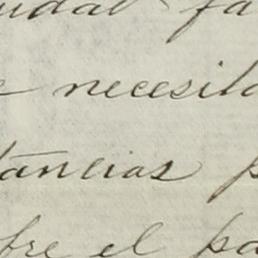 udal fa
necesita
tancias p
bre el pa